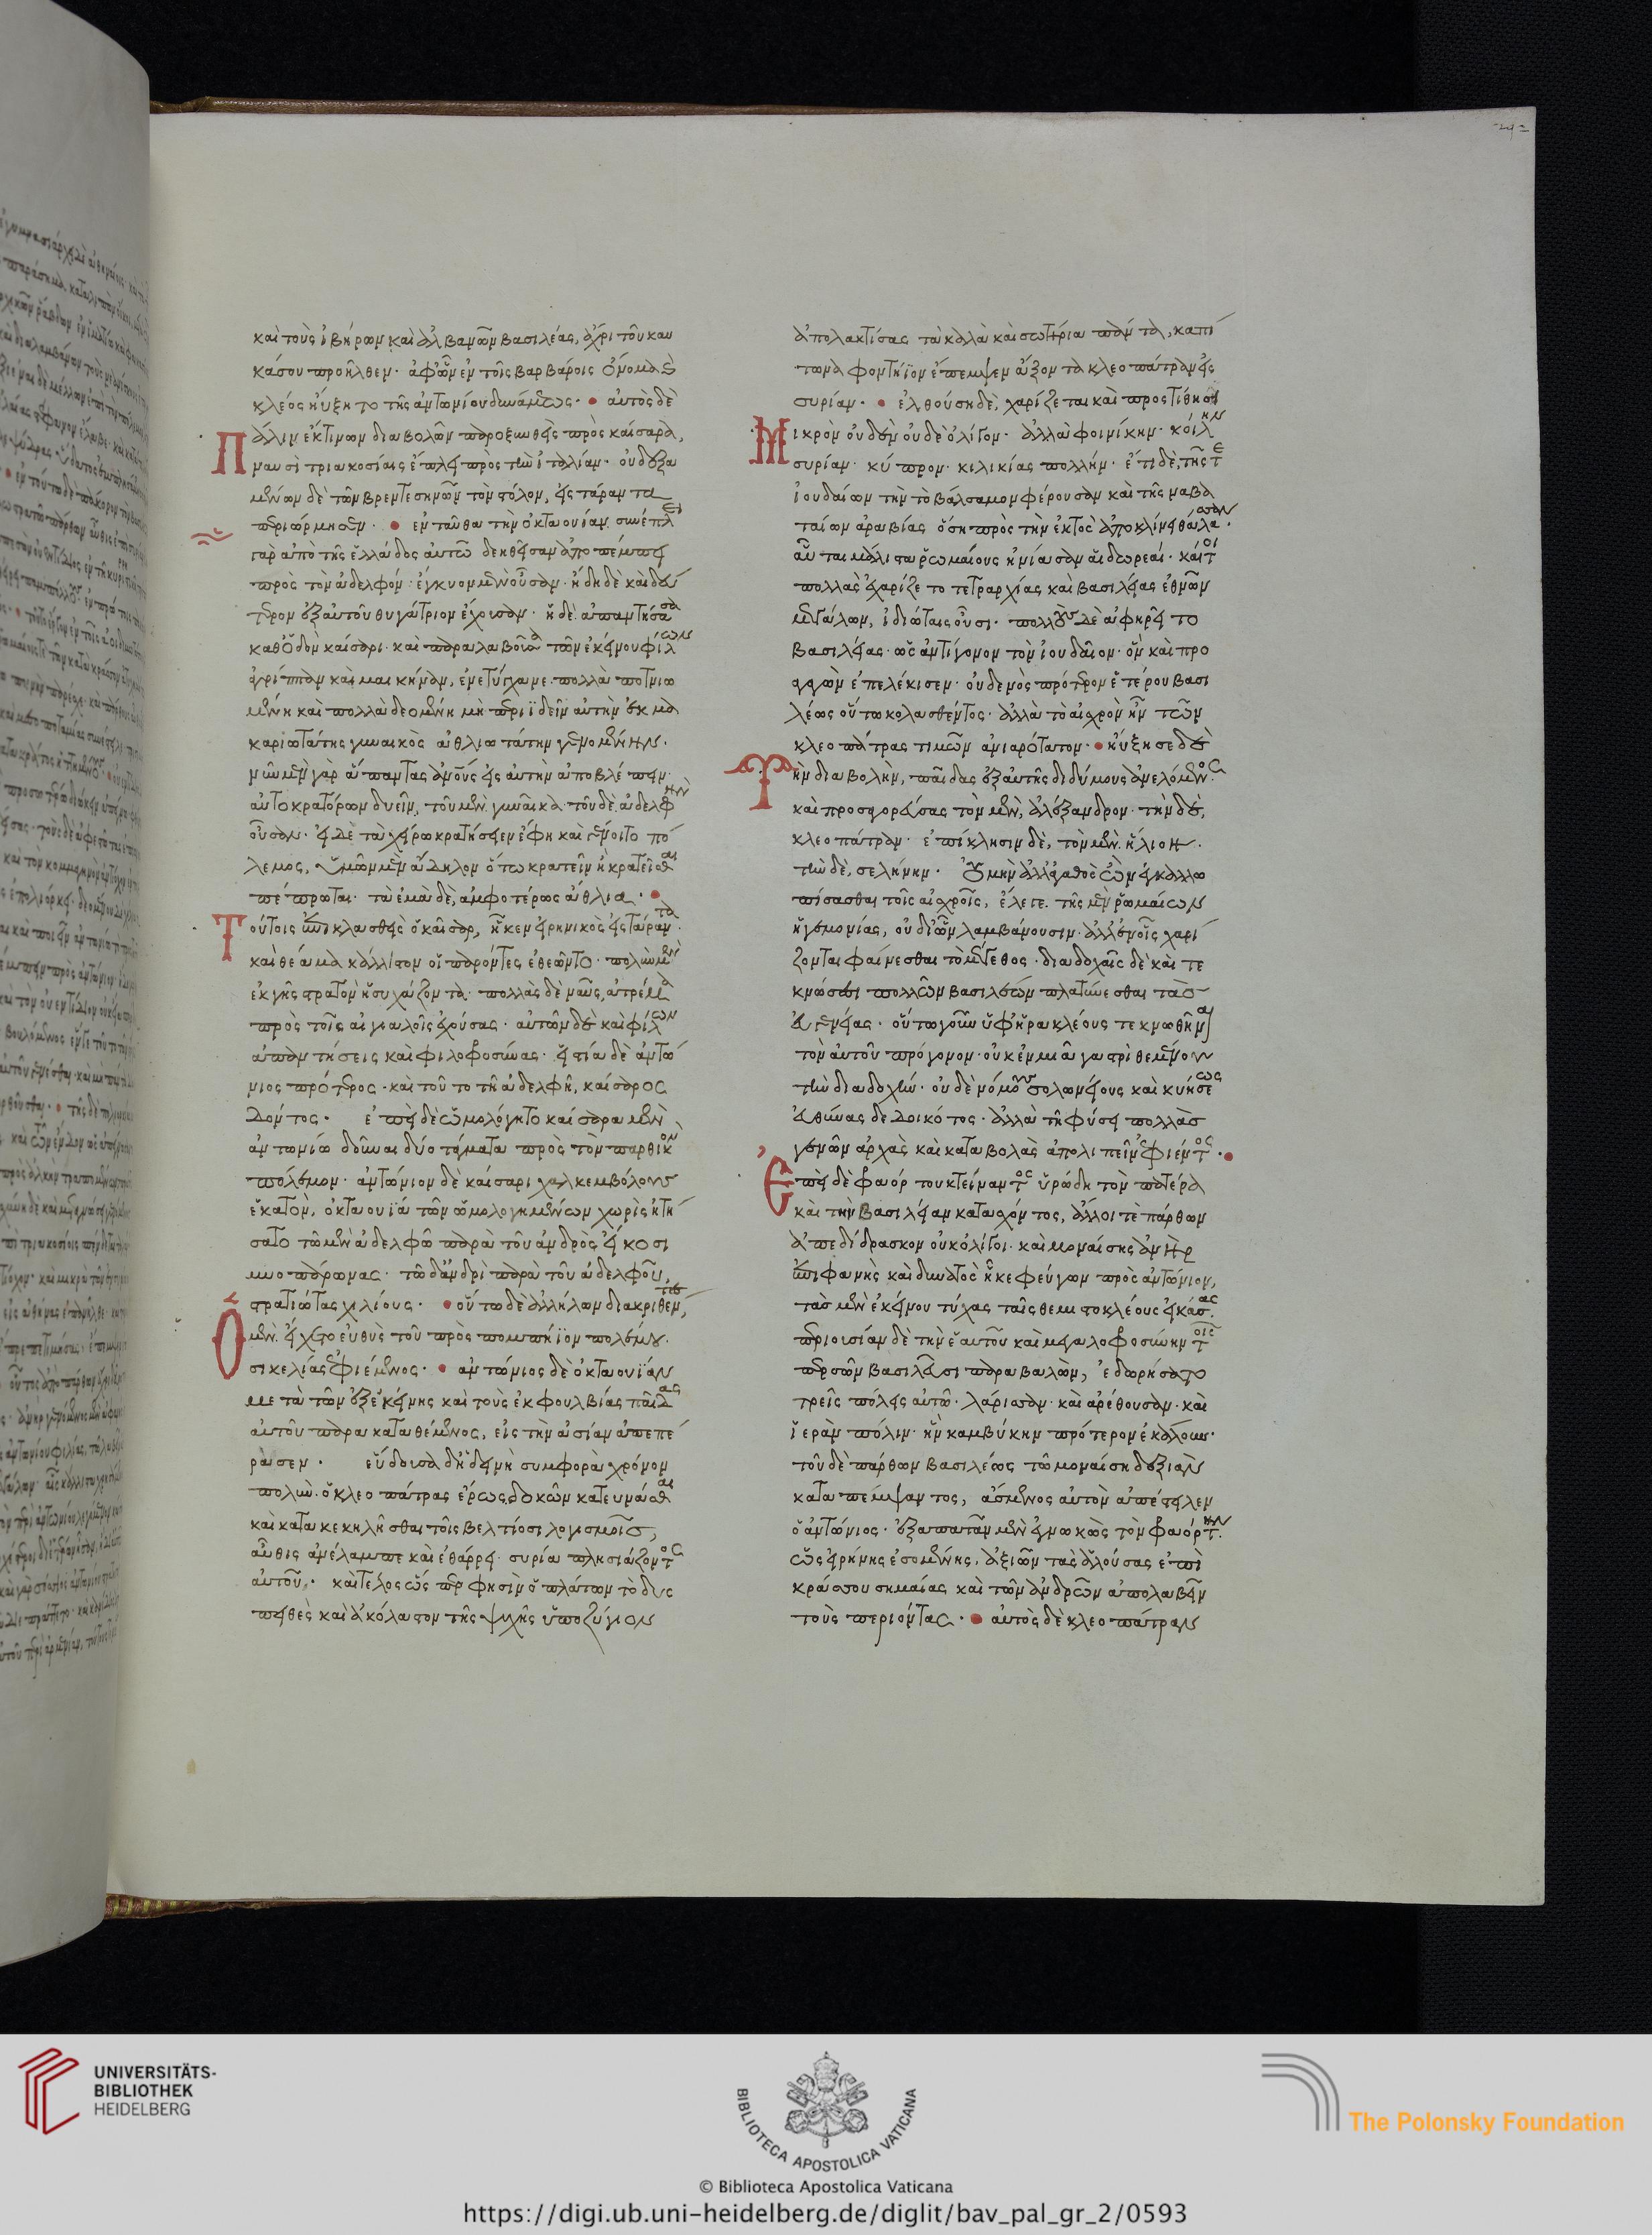 καὶ τοὺς ἰβήρων καὶ ἀλβανῶν βασιλέας, ἄχρι τοῦ καυ
κάσου προῆλθεν· ἀφ' ὧν ἐν τοῖς βαρβάροις ὄνομα κ(αὶ)
κλέος ηὔξητο τῆς ἀντωνίου δυνάμεως· αὐτὸς δὲ
Πάλιν ἔκ τινων διαβολῶν παροξυνθεὶς πρὸς καίσαρα,
ναυσὶ τριακοσίαις ἔπλει πρὸς τὴν ἰταλίαν· οὐ δεξα
μένων δὲ τῶν βρεντεσηνῶν τὸν στόλον, εἰς τάραντα
περιώρμησεν· ἐνταῦθα τὴν ὀκταουίαν. συνέπλει
γὰρ ἀπὸ τῆς ἑλλάδος αὐτῶ δεηθεῖσαν ἀποπέμπει
πρὸς τὸν ἀδελφόν· ἔγκυον μὲν οὖσαν· ἤδη δὲ καὶ δεύ
τερον ἐξ αὐτοῦ θυγάτριον ἔχουσαν· ἡ δὲ ἀπαντήσασα
καθ' ὁδὸν καίσαρι· καὶ παραλαβοῦσα τῶν ἐκείνου φίλων
ἀγρίππαν καὶ μαικήναν, ἐνετύγχανε πολλὰ ποτνιω
μένη καὶ πολλὰ δεομένη μὴ περιϊδεῖν αὐτὴν ἐκ μα
καριωτάτης γυναικὸς ἀθλιωτάτην γενομένην·
νῦν μὲν γὰρ ἅπαντας ἀν(θρώπ)ους εἰς αὐτὴν ἀποβλέπειν·
αὐτοκρατόρων δυεῖν, τοῦ μὲν. γυναῖκα· τοῦ δὲ, ἀδελφὴν
οὖσαν· εἰ δὲ τὰ χείρω κρατήσειεν ἔφη καὶ γένοιτο πό
λεμος, ὑμῶν μὲν ἄδηλον ὅτω κρατεῖν ἢ κρατεῖσθαι
πέπρωται· τὰ ἐμὰ δὲ, ἀμφοτέρως ἄθλια·
Τούτοις ἐπικλασθεὶς ὁ καῖσαρ, ἧκεν εἰρηνικὸς εἰς τάραντα·
καὶ θέαμα κάλλιστον οἱ παρόντες ἐθεῶντο· πολὺν μὲν
ἐκ γῆς στρατὸν ἡσυχάζοντα· πολλὰς δὲ ναῦς, ἀτρέμα
πρὸς τοῖς αἰγιαλοῖς ἐχούσας· αὐτῶν δὲ καὶ φίλων
ἀπαντήσεις καὶ φιλοφροσύνας· εἱστία δὲ ἀντώ
νιος πρότερος· καὶ τοῦτο τῆ ἀδελφῆ, καίσαρος
δόντος· ἐπεὶ δὲ ὡμολόγητο καίσαρα μὲν
ἀντωνίω δοῦναι δύο τάγματα πρὸς τὸν παρθικὸν
πόλεμον· ἀντώνιον δὲ καίσαρι χαλκεμβόλους
ἑκατὸν, ὀκταουΐα τῶν ὡμολογημένων χωρὶς ἠτή
σατο τῶ μὲν ἀδελφῶ παρὰ τοῦ ἀνδρὸς εἴκοσι
μυοπάρωνας· τῶ δ' ἀνδρὶ παρὰ τοῦ ἀδελφοῦ,
στρατιώτας χιλίους· οὕτω δὲ ἀλλήλων διακριθέντες,
Ὁ μὲν. εἴχετο εὐθὺς τοῦ πρὸς πομπήϊον πολέμου·
σικελίας ἐφιέμενος· ἀντώνιος δὲ ὀκταουΐαν
μετὰ τῶν ἐξ ἐκείνης καὶ τοὺς ἐκ φουλβίας παῖδας
αὐτοῦ παρακαταθέμενος, εἰς τὴν ἀσίαν ἀπεπέ
ρασεν· εὕδουσα δ' ἡ δεινὴ συμφορὰ χρόνον
πολὺν. ὁ κλεοπάτρας ἔρως, δοκῶν κατευνάσθαι
καὶ κατακεκηλῆσθαι τοῖς βελτίοσι λογισμοῖς,
αὖθις ἀνέλαμπε καὶ ἐθάρρει· συρία πλησιάζοντος
αὐτοῦ· καὶ τέλος ὥς περ φησὶν ὁ πλάτων τὸ δυς
πειθὲς καὶ ἀκόλαστον τῆς ψυχῆς ὑποζύγιον
ἀπολακτίσας τὰ καλὰ καὶ σωτήρια πάντα, καπί
τωνα φοντήϊον ἔπεμψεν ἄξοντα κλεοπάτραν εἰς
συρίαν· ἐλθούση δὲ, χαρίζεται καὶ προστίθησι
Μικρὸν οὐδὲν οὐδὲ ὀλίγον· ἀλλὰ φοινίκην· κοίλην
συρίαν· κύπρον· κιλικίας πολλήν· ἔτι δὲ, τῆς τε
ἰουδαίων τὴν τὸ βάλσαμον φέρουσαν καὶ τῆς ναβα
ταίων ἀραβίας ὅση πρὸς τὴν ἐκτὸς ἀποκλίνει θάλασσαν·
αὗται μάλιστα ῥωμαίους ἠνίασαν αἱ δωρεαί· καίτοι
πολλοῖς ἐχαρίζετο τετραρχίας καὶ βασιλείας ἐθνῶν
μεγάλων, ἰδιώταις οὖσι· πολλοὺς δὲ ἀφηρεῖτο
βασιλείας· ὡς ἀντίγονον τὸν ἰουδαῖον· ὃν καὶ προ
αγαγὼν ἐπελέκισεν· οὐδενὸς πρότερον ἑτέρου βασι
λέως οὕτω κολασθέντος· ἀλλὰ τὸ αἰσχρὸν ἦν τῶν
κλεοπάτρας τιμῶν ἀνιαρότατον· ηὔξησε δὲ
Τὴν διαβολὴν, παῖδας ἐξ αὐτῆς διδύμους ἀνελόμενος·
καὶ προσαγορεύσας τὸν μὲν, ἀλέξανδρον· τὴν δὲ,
κλεοπάτραν· ἐπίκλησιν δὲ, τὸν μὲν. ἥλιον·
τὴν δὲ, σελήνην· οὐ μὴν ἀλλ' ἀγαθὸς ὢν ἐγκαλλω
πίσασθαι τοῖς αἰσχροῖς, ἔλεγε· τῆς μὲν ῥωμαίων
ἡγεμονίας, οὐ δι' ὧν λαμβάνουσιν· ἀλλ' ἐν οἷς χαρί
ζονται φαίνεσθαι τὸ μέγεθος· διαδοχαῖς δὲ καὶ τε
κνώσεσι πολλῶν βασιλέων πλατύνεσθαι τὰς
εὐγενείας· οὕτω γοῦν ὑφ' ἡρακλέους τεκνωθῆναι
τὸν αὐτοῦ πρόγονον· οὐκ ἐν μιᾶ γαστρὶ θεμένου
τὴν διαδοχήν· οὐδὲ νόμους σολωνείους καὶ κυήσεως
εὐθύνας δεδοικότος· ἀλλὰ τῆ φύσει πολλὰς
γενῶν ἀρχὰς καὶ καταβολὰς ἀπολιπεῖν ἐφιέντος·
Ἐπεὶ δὲ φαόρτου κτείναντος ὑρώδη τὸν πατέρα
καὶ τὴν βασιλείαν κατασχόντος, ἄλλοι τὲ πάρθων
ἀπεδίδρασκον οὐκ ὀλίγοι· καὶ μοναίσης ἀνὴρ
ἐπιφανὴς καὶ δυνατὸς ἧκε φεύγων πρὸς ἀντώνιον,
τὰς μὲν ἐκείνου τύχας ταῖς θεμιστοκλέους εἰκάσας·
περιουσίαν δὲ τὴν ἑαυτοῦ καὶ μεγαλοφροσύνην τοῖς
περσῶν βασιλεῦσι παραβαλὼν, ἐδωρήσατο
τρεῖς πόλεις αὐτῶ· λάρισσαν· καὶ ἀρέθουσαν· καὶ
ἱερὰν πόλιν· ἣν βαμβύκην πρότερον ἐκάλουν·
τοῦ δὲ πάρθων βασιλέως τῶ μοναίση δεξιὰν
καταπέμψαντος, ἄσμενος αὐτὸν ἀπέστειλεν
ὁ ἀντώνιος· ἐξαπατᾶν μὲν ἐγνωκὼς τὸν φαόρτην·
ὡς εἰρήνης ἐσομένης, ἀξιῶν τὰς ἁλούσας ἐπὶ
κράσσου σημαίας καὶ τῶν ἀνδρῶν ἀπολαβεῖν
τοὺς περιόντας· αὐτὸς δὲ κλεοπάτραν
UNIVERSITÄTS-
BIBLIOTHEK
HEIDELBERG
BIBLIOTECA APOSTOLICA VATICANA
The Polonsky Foundation
© Biblioteca Apostolica Vaticana
https://digi.ub.uni-heidelberg.de/diglit/bav_pal_gr_2/0593